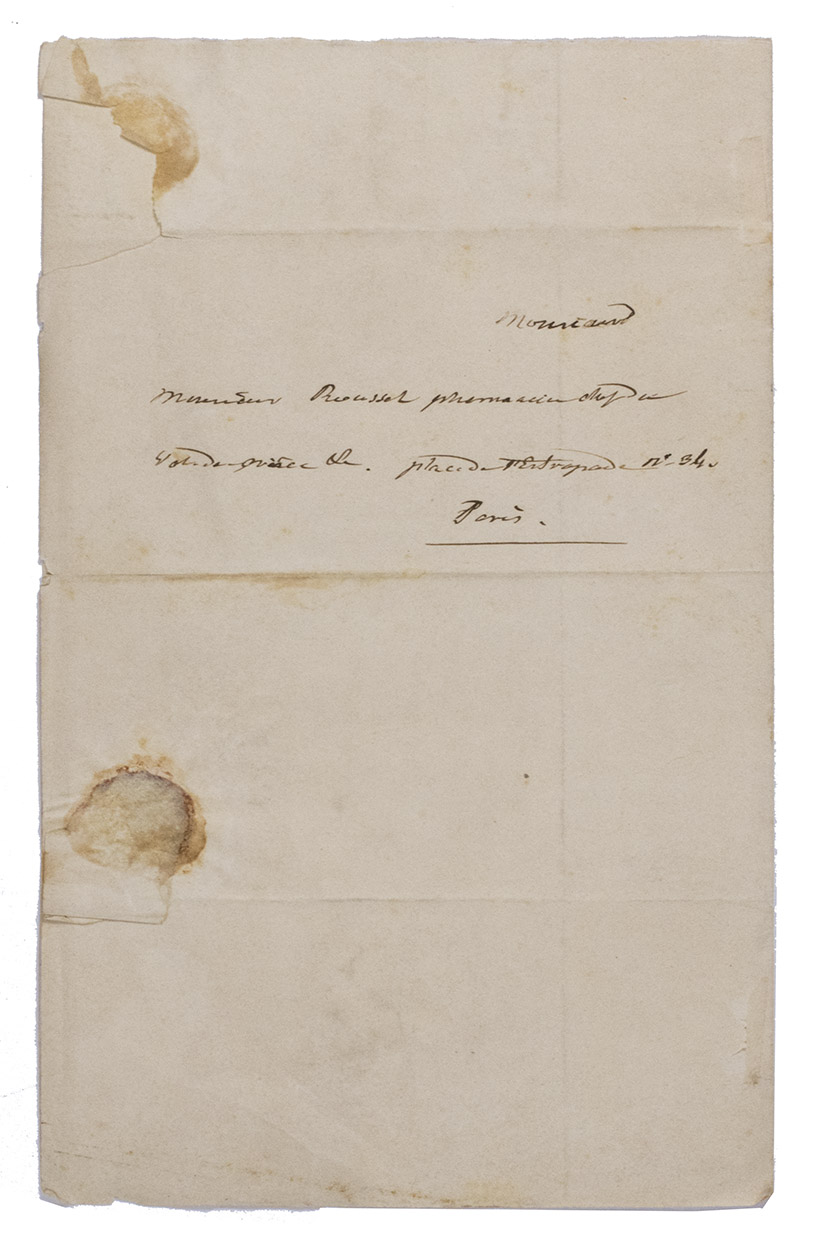 Monsieur
Monsieur Roussel pharmacien chef du
Val de grâce &c. place de l'Estrapade n° 34.
Paris.